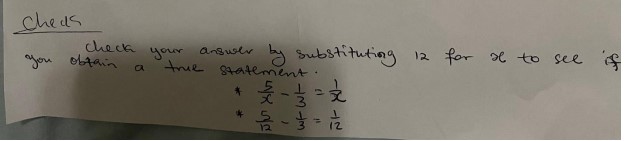 Check
Check your answer by substituting 12 for x to see if
you obtain a true statement.
* 5/x - 1/3 = 1/x
* 5/12 - 1/3 = 1/12